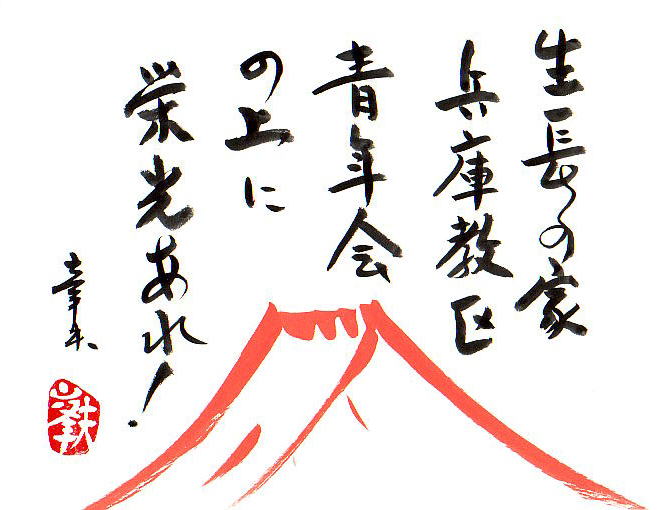 生長の家
兵庫教区
青年会
の上に
栄光あれ!